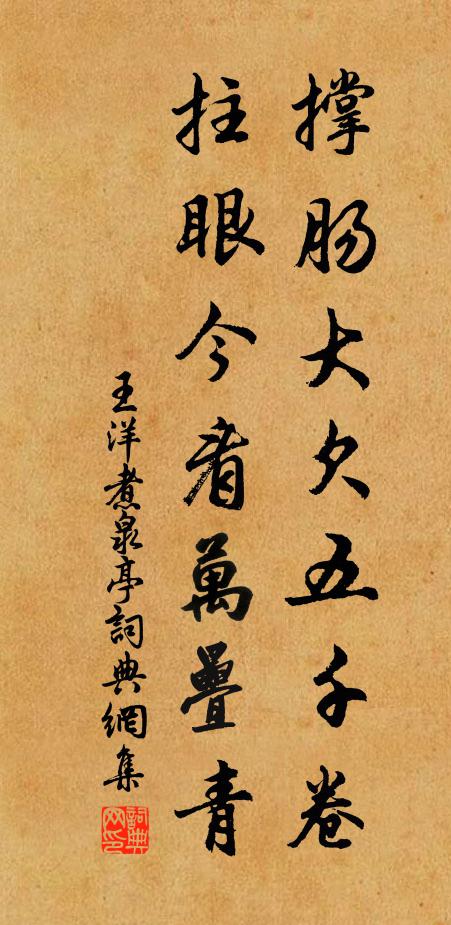 撑肠大欠五千卷
拄眼今看萬疊青
王洋煮泉亭詞典網集
詞典网印